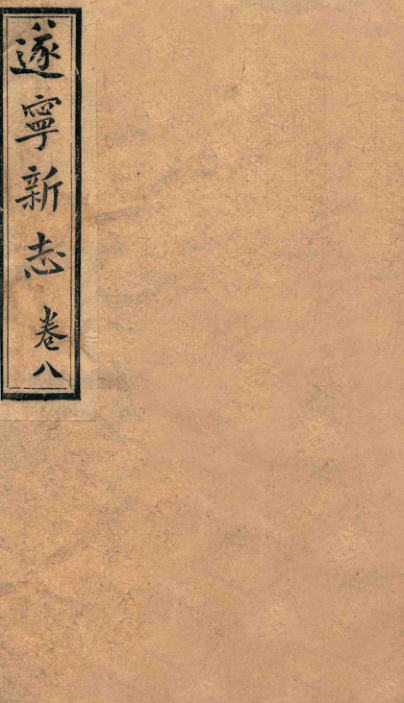 遂寧新志 卷八